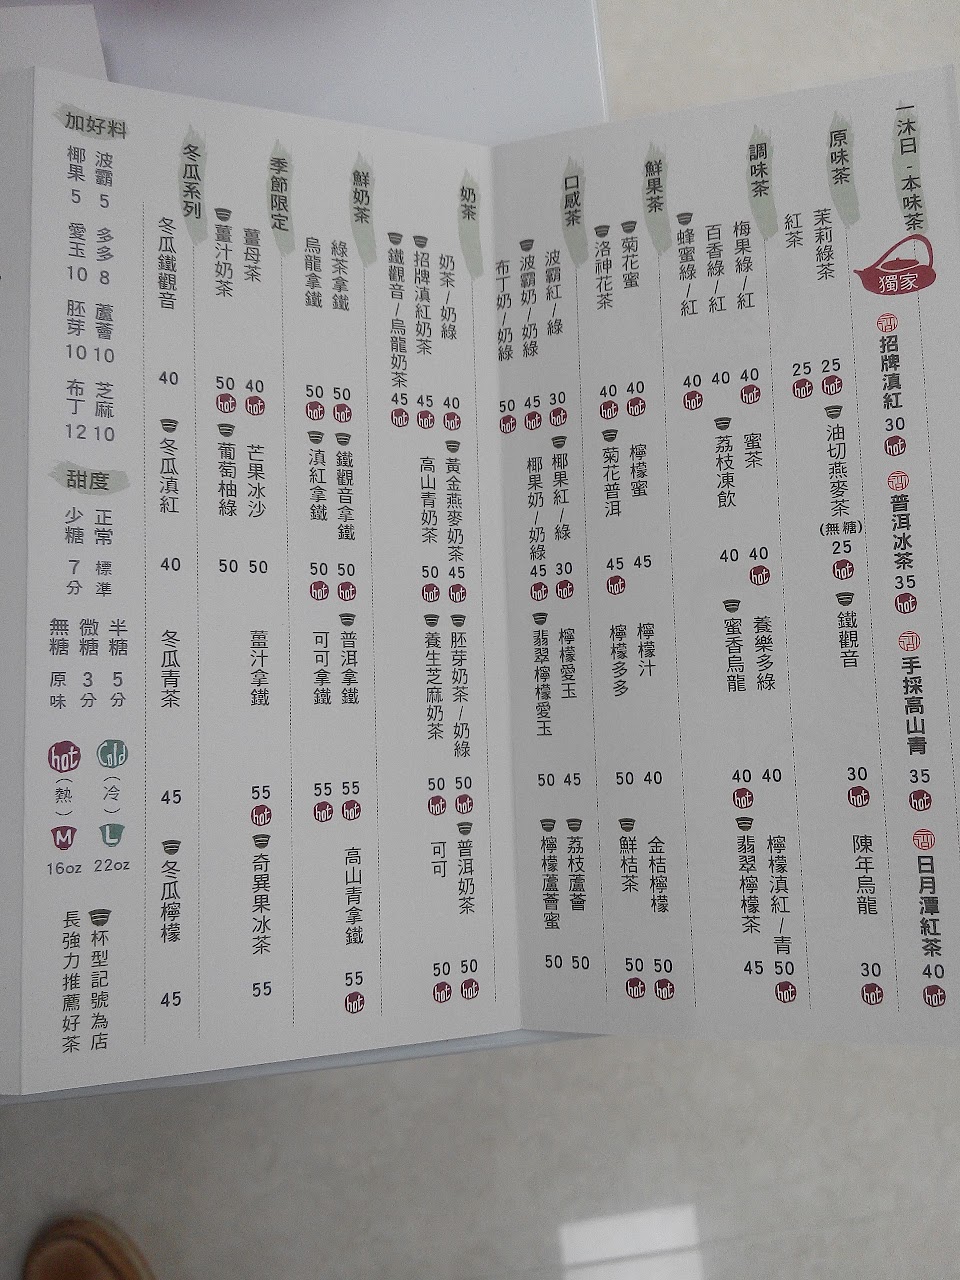 一沐日-本味茶
獨家
招牌滇紅 30 hot
普洱冰茶 35 hot
手採高山青 35 hot
日月潭紅茶 40 hot
原味茶
茉莉綠茶 25 hot
油切燕麥茶(無糖) 25 hot
鐵觀音 30 hot
陳年烏龍 30 hot
紅茶 25 hot
調味茶
梅果綠/紅 40 hot
蜜茶 40 hot
養樂多綠 40
檸檬滇紅/青 50 hot
百香綠/紅 40
荔枝凍飲 40
蜜香烏龍 40 hot
翡翠檸檬茶 45
蜂蜜綠/紅 40 hot
鮮果茶
菊花蜜 40 hot
檸檬蜜 45
檸檬汁 40
金桔檸檬 50 hot
洛神花茶 40 hot
菊花普洱 45 hot
檸檬多多 50
鮮桔茶 50 hot
口感茶
波霸紅/綠 30 hot
椰果紅/綠 30 hot
檸檬愛玉 45
荔枝蘆薈 50
波霸奶/奶綠 45 hot
椰果奶/奶綠 45 hot
翡翠檸檬愛玉 50
檸檬蘆薈蜜 50
布丁奶/奶綠 50 hot
奶茶
奶茶/奶綠 40 hot
黃金燕麥奶茶 45 hot
胚芽奶茶/奶綠 50 hot
普洱奶茶 50 hot
招牌滇紅奶茶 45 hot
高山青奶茶 50 hot
養生芝麻奶茶 50 hot
可可 50 hot
鐵觀音/烏龍奶茶 45 hot
鮮奶茶
綠茶拿鐵 50 hot
鐵觀音拿鐵 50 hot
普洱拿鐵 55 hot
高山青拿鐵 55 hot
烏龍拿鐵 50 hot
滇紅拿鐵 50 hot
可可拿鐵 55 hot
季節限定
薑母茶 40 hot
芒果冰沙 50
薑汁拿鐵 55 hot
奇異果冰茶 55
薑汁奶茶 50 hot
葡萄柚綠 50
冬瓜系列
冬瓜鐵觀音 40
冬瓜滇紅 40
冬瓜青茶 45
冬瓜檸檬 45
加好料
波霸 5
多多 8
蘆薈 10
芝麻 10
椰果 5
愛玉 10
胚芽 10
布丁 12
甜度
正常 標準
少糖 7分
半糖 5分
微糖 3分
無糖 原味
Cold(冷) L 22oz
hot(熱) M 16oz
杯型記號為店
長強力推薦好茶